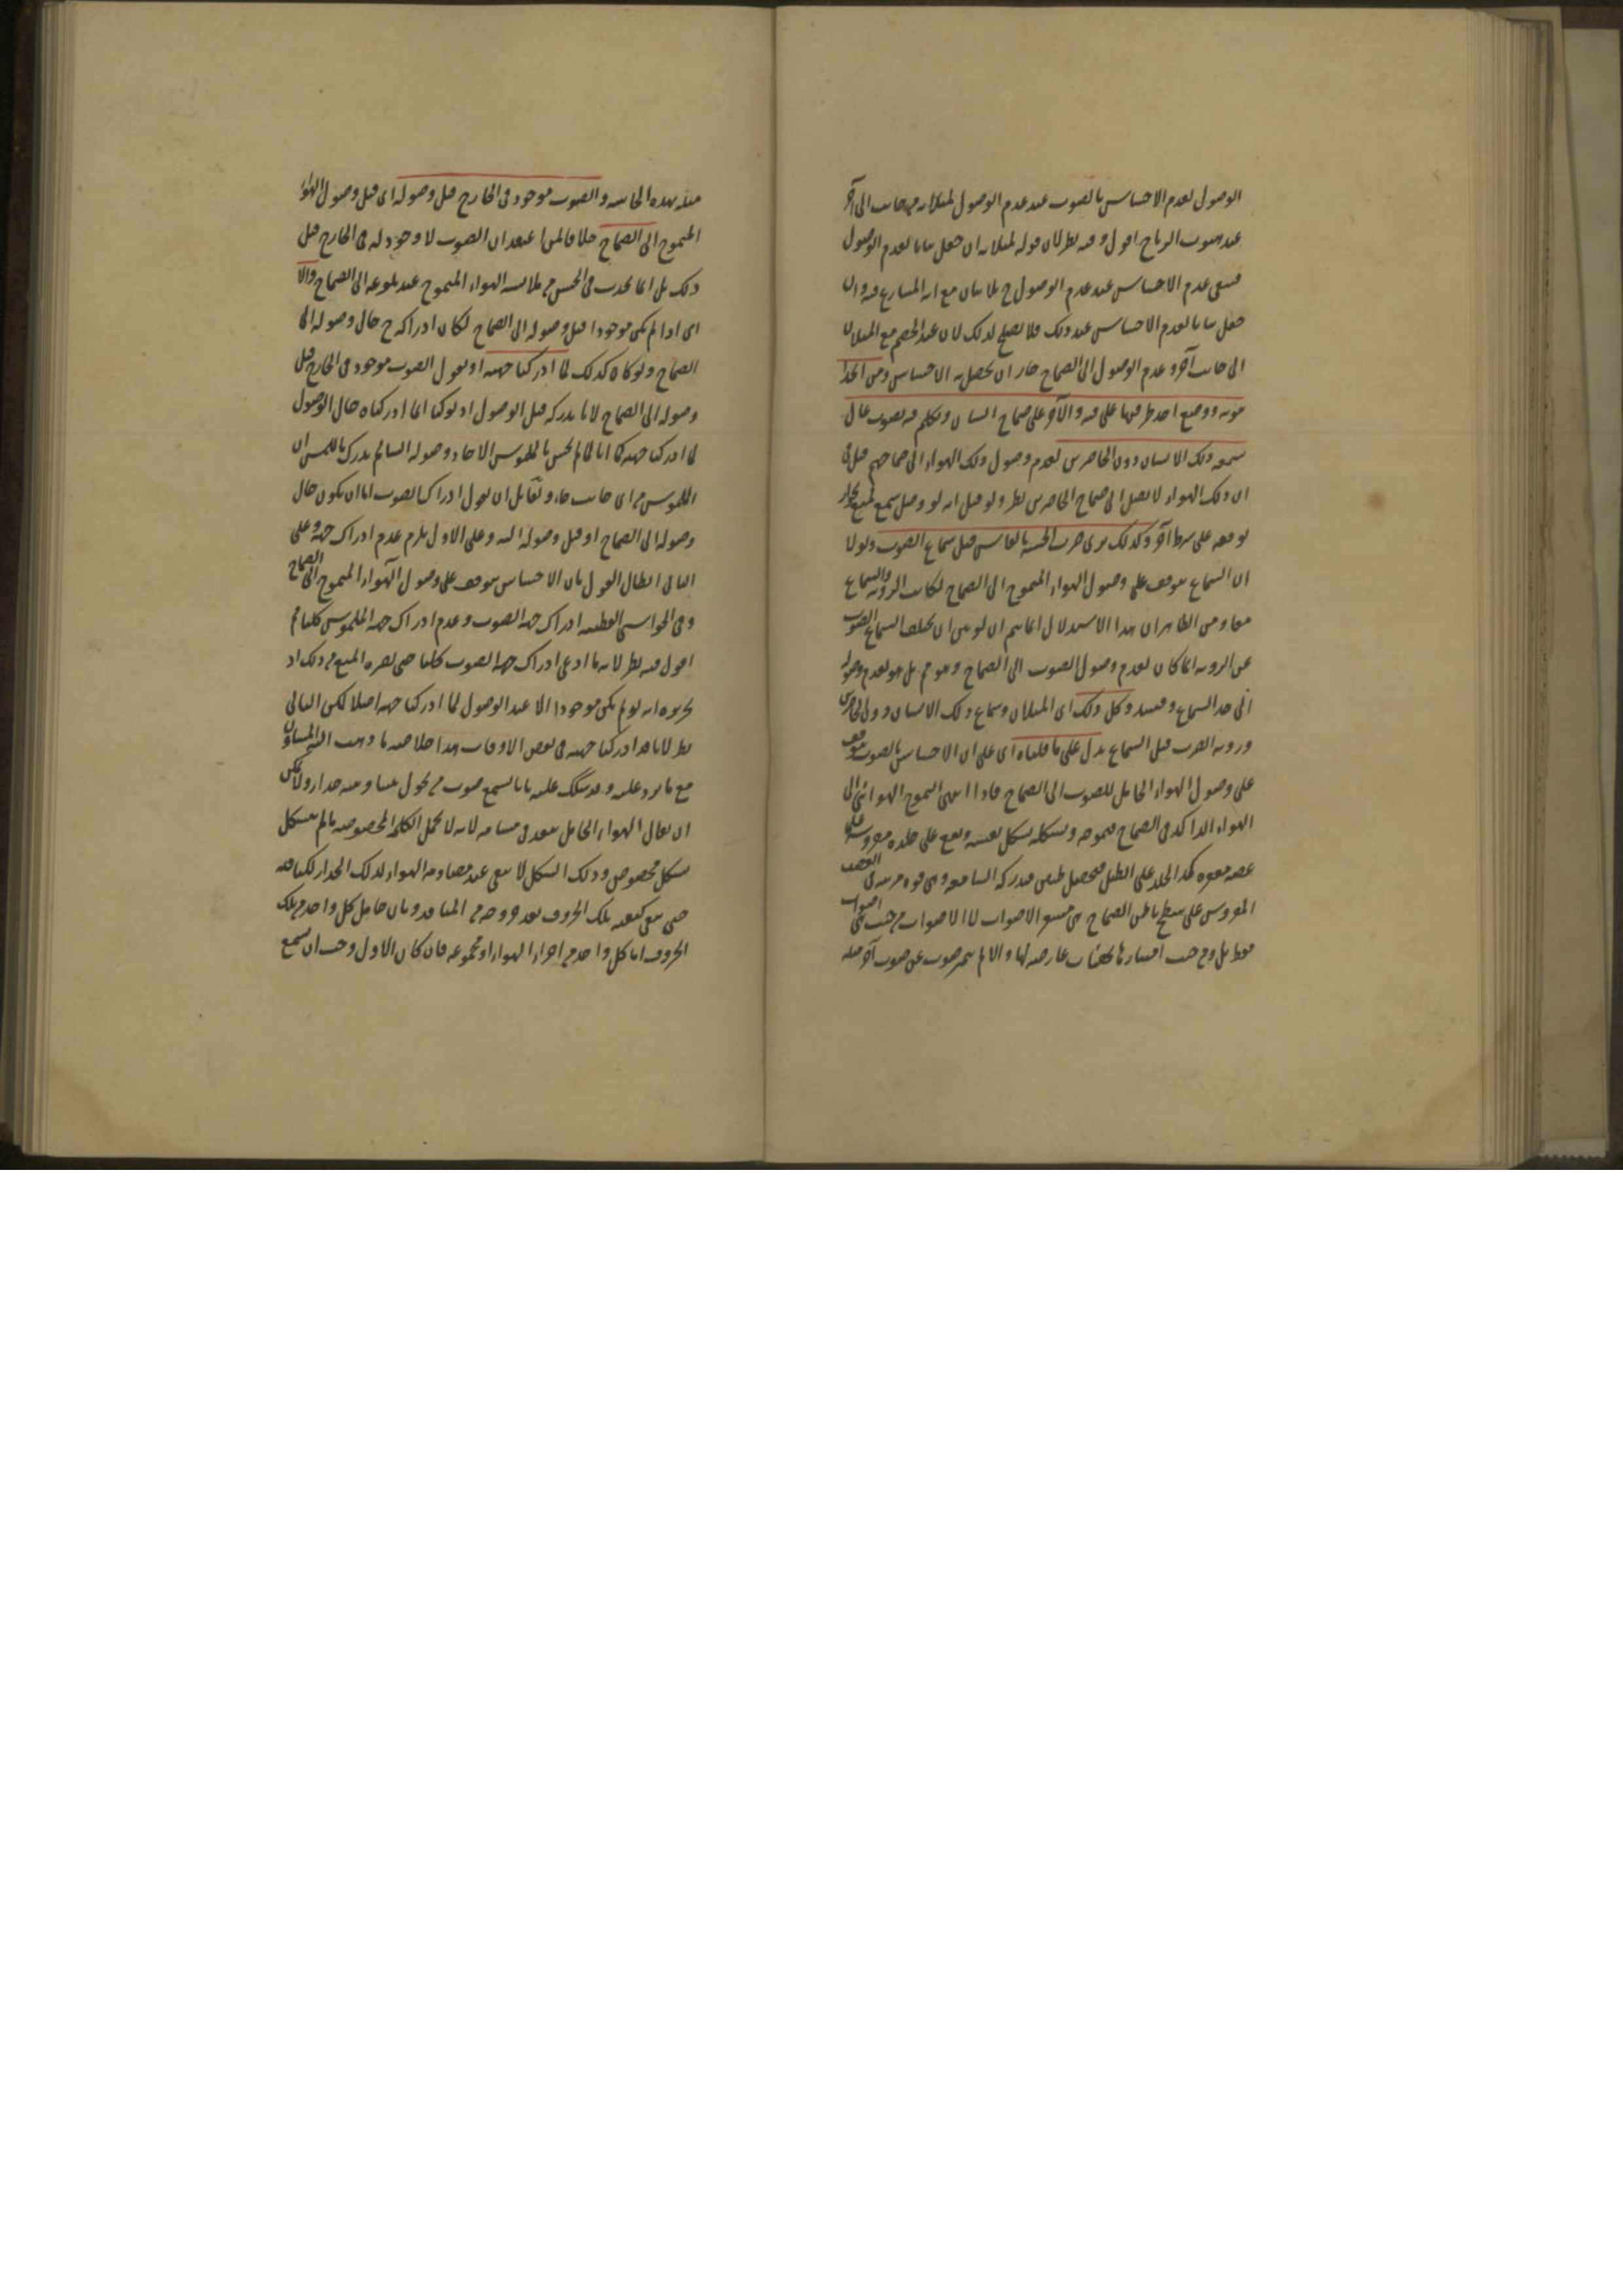 الوصول لعدم الاحساس بالصوت عند عدم الوصول لميلانه من جانب الى آخر
عند هبوب الرياح اقول وفيه نظر لان قوله لميلانه ان جعل بيانا لعدم الوصول
فبقى عدم الاحساس عند عدم الوصول ح بلا بيان مع انه المتنازع فيه وان
جعل بيانا لعدم الاحساس عند ذلك فلا يصلح لذلك لان عند الخصم مع الميلان
الى جانب آخر وعدم الوصول الى الصماخ جاز ان يحصل به الاحساس ومن اتخذ
ووضع احد طرفيها على فيه والآخر على صماخ انسان وتكلم فيه بصوت عال
سمعه ذلك الانسان دون الحاضرين لعدم وصول ذلك الهواء الى صماخهم قيل في
ان ذلك الهواء لا يصل الى صماخ الحاضرين نظر ولو قيل انه لو وصل سمع لمنع لجواز
توقفه على شرط آخر وكذلك نرى ضرب الخشبة بالفاس قبل سماع الصوت ولولا
ان السماع يتوقف على وصول الهواء المتموج الى الصماخ لكانت الرؤية والسماع
معا ومن الظاهر ان هذا الاستدلال انما يتم ان لو بين ان تخلف السماع الصوت
عن الرؤية انما كان لعدم وصول الصوت الى الصماخ وهو مم بل هو لعدم وصوله
الى حد السماع وكل ذلك اى الميلان وسماع ذلك الانسان دون الحاضرين
ورؤية الضرب قبل السماع يدل على ما قلناه اى على ان الاحساس بالصوت موقف
على وصول الهواء الحامل للصوت الى الصماخ فاذا انتهى التموج الهوائى الى
الهواء الراكد فى الصماخ فيموجه ويشكله بشكل نفسه ويقع على جلدة مفروشة على
عصبة مقعرة كمد الجلد على الطبل فيحصل طنين فيدركه السامعة وهى قوة مرتبة فى العصب
المفروش على سطح باطن الصماخ الاصوات لا الاصوات من حيث هى اصوات
فقط بل ومن حيث امتيازها بكيفيات عارضة لها والا لم يتميز صوت عن صوت آخر مثله
بهذه الحاسة والصوت موجود فى الخارج قبل وصوله اى قبل وصول الهواء
المتموج الى الصماخ خلافا لمن اعتقد ان الصوت لا وجود له فى الخارج قبل
ذلك بل انما يحدث فى الحس من ملامسة الهواء المتموج عند بلوغه الى الصماخ والا
اى اذا لم يكن موجودا قبل وصوله الى الصماخ لكان ادراكه ح حال وصوله الى
الصماخ ولو كان كذلك لما ادركنا جهته او نقول الصوت موجود فى الخارج قبل
وصوله الى الصماخ لانا ندركه قبل الوصول اذ لو كنا انما ادركناه حال الوصول
لما ادركنا جهته كما انا لما لم نحس بالملموس الا حال وصوله الينا لم ندرك باللمس ان
الملموس من اى جانب جاء ولقائل ان يقول ادراك الصوت اما ان يكون حال
وصوله الى الصماخ او قبل وصوله اليه وعلى الاول يلزم عدم ادراك جهته وعلى
الثانى ابطال القول بان الاحساس موقف على وصول الهواء المتموج الى الصماخ
وفى الحواشى القطبية ادراك جهة الصوت وعدم ادراك جهة الملموس كلما مم
اقول فيه نظر لانه ما ادعى ادراك جهة الصوت كليا حتى يضره المنع من ذلك اذ
تحريره انه لو لم يكن موجودا الا عند الوصول لما ادركنا جهته اصلا لكن التالى
بط لانا قد ادركنا جهته فى بعض الاوقات هذا خلاصة ما ذهب اليه المشاؤن
مع ما يرد عليه وقد يشكك عليه بانا نسمع صوت من يحول بيننا وبينه جدار ولا يمكن
ان يقال الهواء الحامل ينفذ فى مسامه لانه لا يحمل الكلمة المخصوصة ما لم يتشكل
بشكل مخصوص وذلك الشكل لا يبقى عند مصادمة الهواء لذلك الجدار لكثافته
حتى يبقى كيفية تلك الحروف بعد خروجه من المنافذ وبان حامل كل واحد من تلك
الحروف اما كل واحد من اجزاء الهواء او مجموعه فان كان الاول وجب ان يسمع